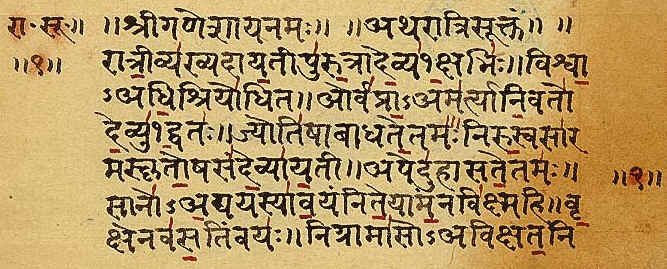 रा॰ सू॰ ॥ ॥श्रीगणेशायनमः॥ ॥अथरात्रिसूक्तं॥ ॥
॥१॥ रात्रीव्यख्यदायतीपुरुत्रादेव्य१क्षभिः॥विश्वा
ऽअधिश्रियोधित॥ओर्वप्राऽअमर्त्यानिवतो
देव्यु१द्वतः॥ज्योतिषाबाधतेतमः॥निरुस्वसार
मस्कृतोषसंदेव्यायती॥अपेदुहासतेतमः॥
सानोऽअद्ययस्यावयंनितेयामन्नविक्ष्महि॥वृ ॥१॥
क्षेनवसतिंवयः॥निग्रामासोऽअविक्षतनि